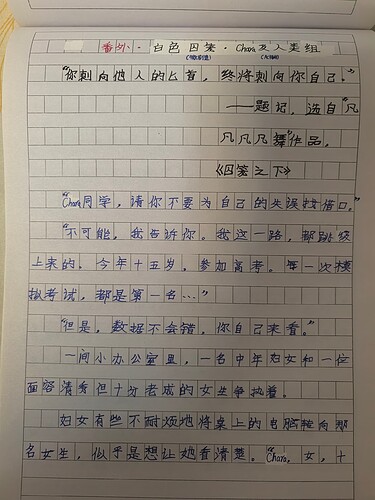 番外·白色囚笼·Chara及人类组
"你刺向他人的匕首，终将刺向你自己。"
——题记，选自"凡
凡凡凡舞"作品，
《囚笼之下》
"Chara同学，请你不要为自己的失误找借口。"
"不可能，我告诉你。我这一路，都跳级
上来的，今年十五岁，参加高考。每一次模
拟考试，都是第一名…"
"但是，数据不会错，你自己来看。"
一间小办公室里，一名中年妇女和一位
面容清秀但十分老成的女生争执着。
妇女有些不耐烦地将桌上的电脑转向那
名女生，似乎是想让她看清楚。Chara，女，十